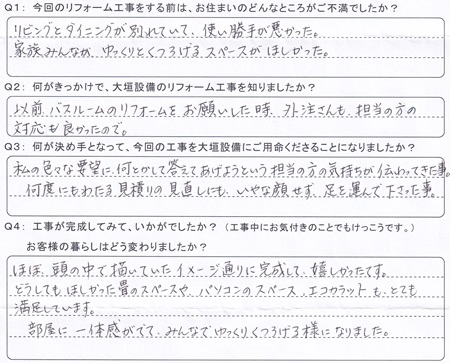 Q1：今回のリフォーム工事をする前は、お住まいのどんなところがご不満でしたか？
リビングとダイニングが別れていて、使い勝手が悪かった。
家族みんなが、ゆっくりとくつろげるスペースがほしかった。
Q2：何がきっかけで、大垣設備のリフォーム工事を知りましたか？
以前バスルームのリフォームをお願いした時、外注さんも、担当の方の
対応も良かったので。
Q3：何が決め手となって、今回の工事を大垣設備にご用命くださることになりましたか？
私の色々な要望に、何とかして答えてあげようという担当の方の気持ちが伝わってきた事。
何度にもわたる見積りの見直しにも、いやな顔せず、足を運んで下さった事。
Q4：工事が完成してみて、いかがでしたか？（工事中にお気付きのことでもけっこうです。）
お客様の暮らしはどう変わりましたか？
ほぼ、頭の中で描いていたイメージ通りに完成して、嬉しかったです。
どうしてもほしかった畳のスペースや、パソコンのスペース、エコカラットも、とても
満足しています。
部屋に一体感がでて、みんなでゆっくりくつろげる様になりました。